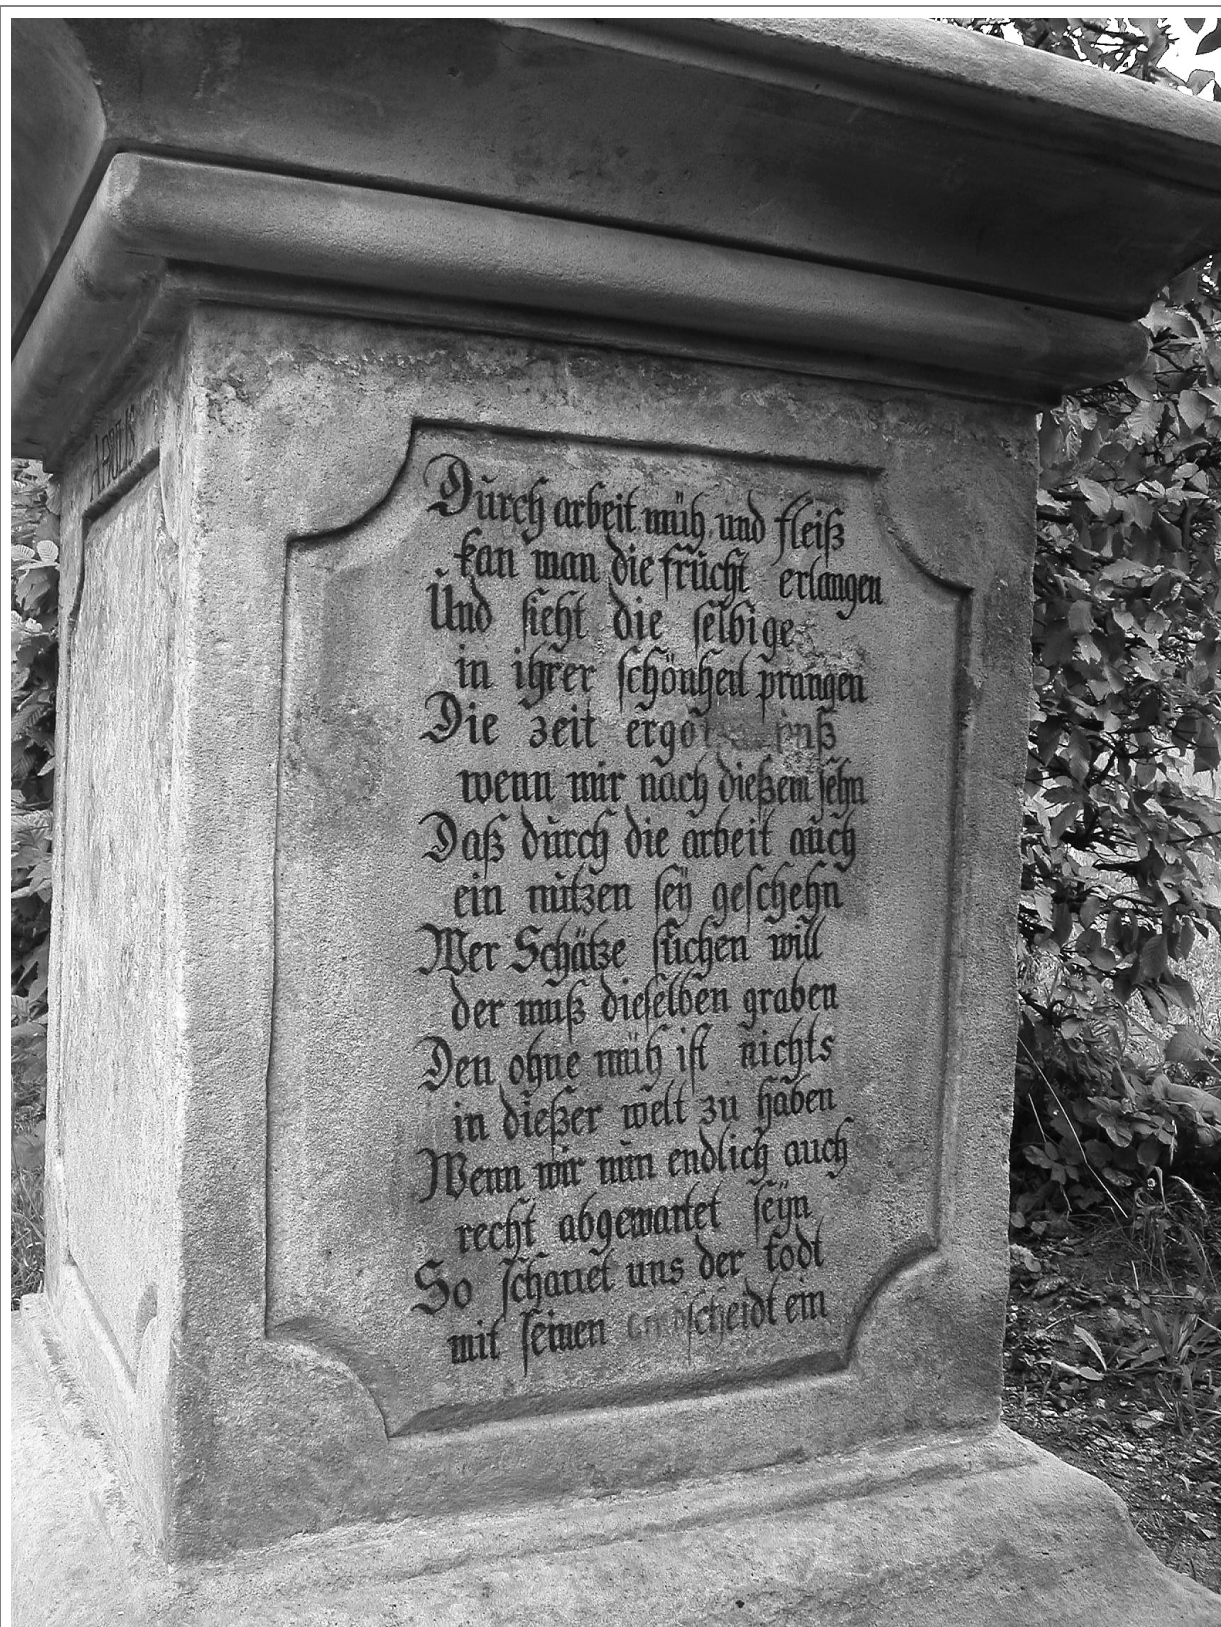 APOTK
Durch arbeit müh und fleiß
kan man die frücht erlangen
Und sieht die selbige
in ihrer schönheit prangen
Die zeit
wenn mir nach dießem sehn
Daß durch die arbeit auch
ein nutzen seÿ geschehn
Wer Schätze suchen will
der muß dieselben graben
Den ohne müh ist nichts
in dießer welt zu haben
Wenn wir nun endlich auch
recht abgewartet seÿn
So schauet uns der todt
mit seinen ein